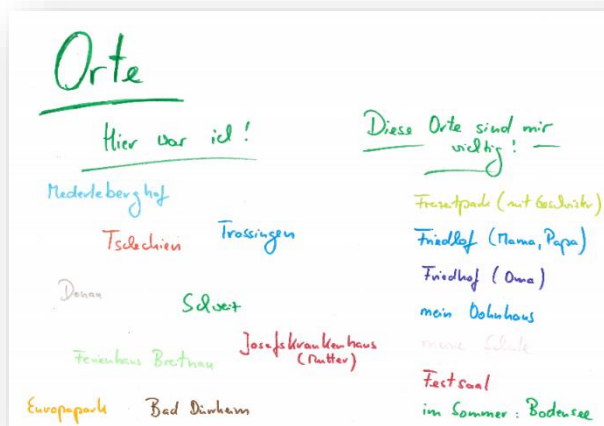 Orte
Hier war ich!
Mederleberghof
Tschechien
Trossingen
Donau
Schweiz
Josefskrankenhaus
(Mutter)
Ferienhaus Breitnau
Europapark
Bad Dürrheim
Diese Orte sind mir
wichtig!
Freizeitpark (mit Geschwister)
Friedhof (Mama, Papa)
Friedhof (Oma)
mein Wohnhaus
meine Schule
Festsaal
im Sommer: Bodensee